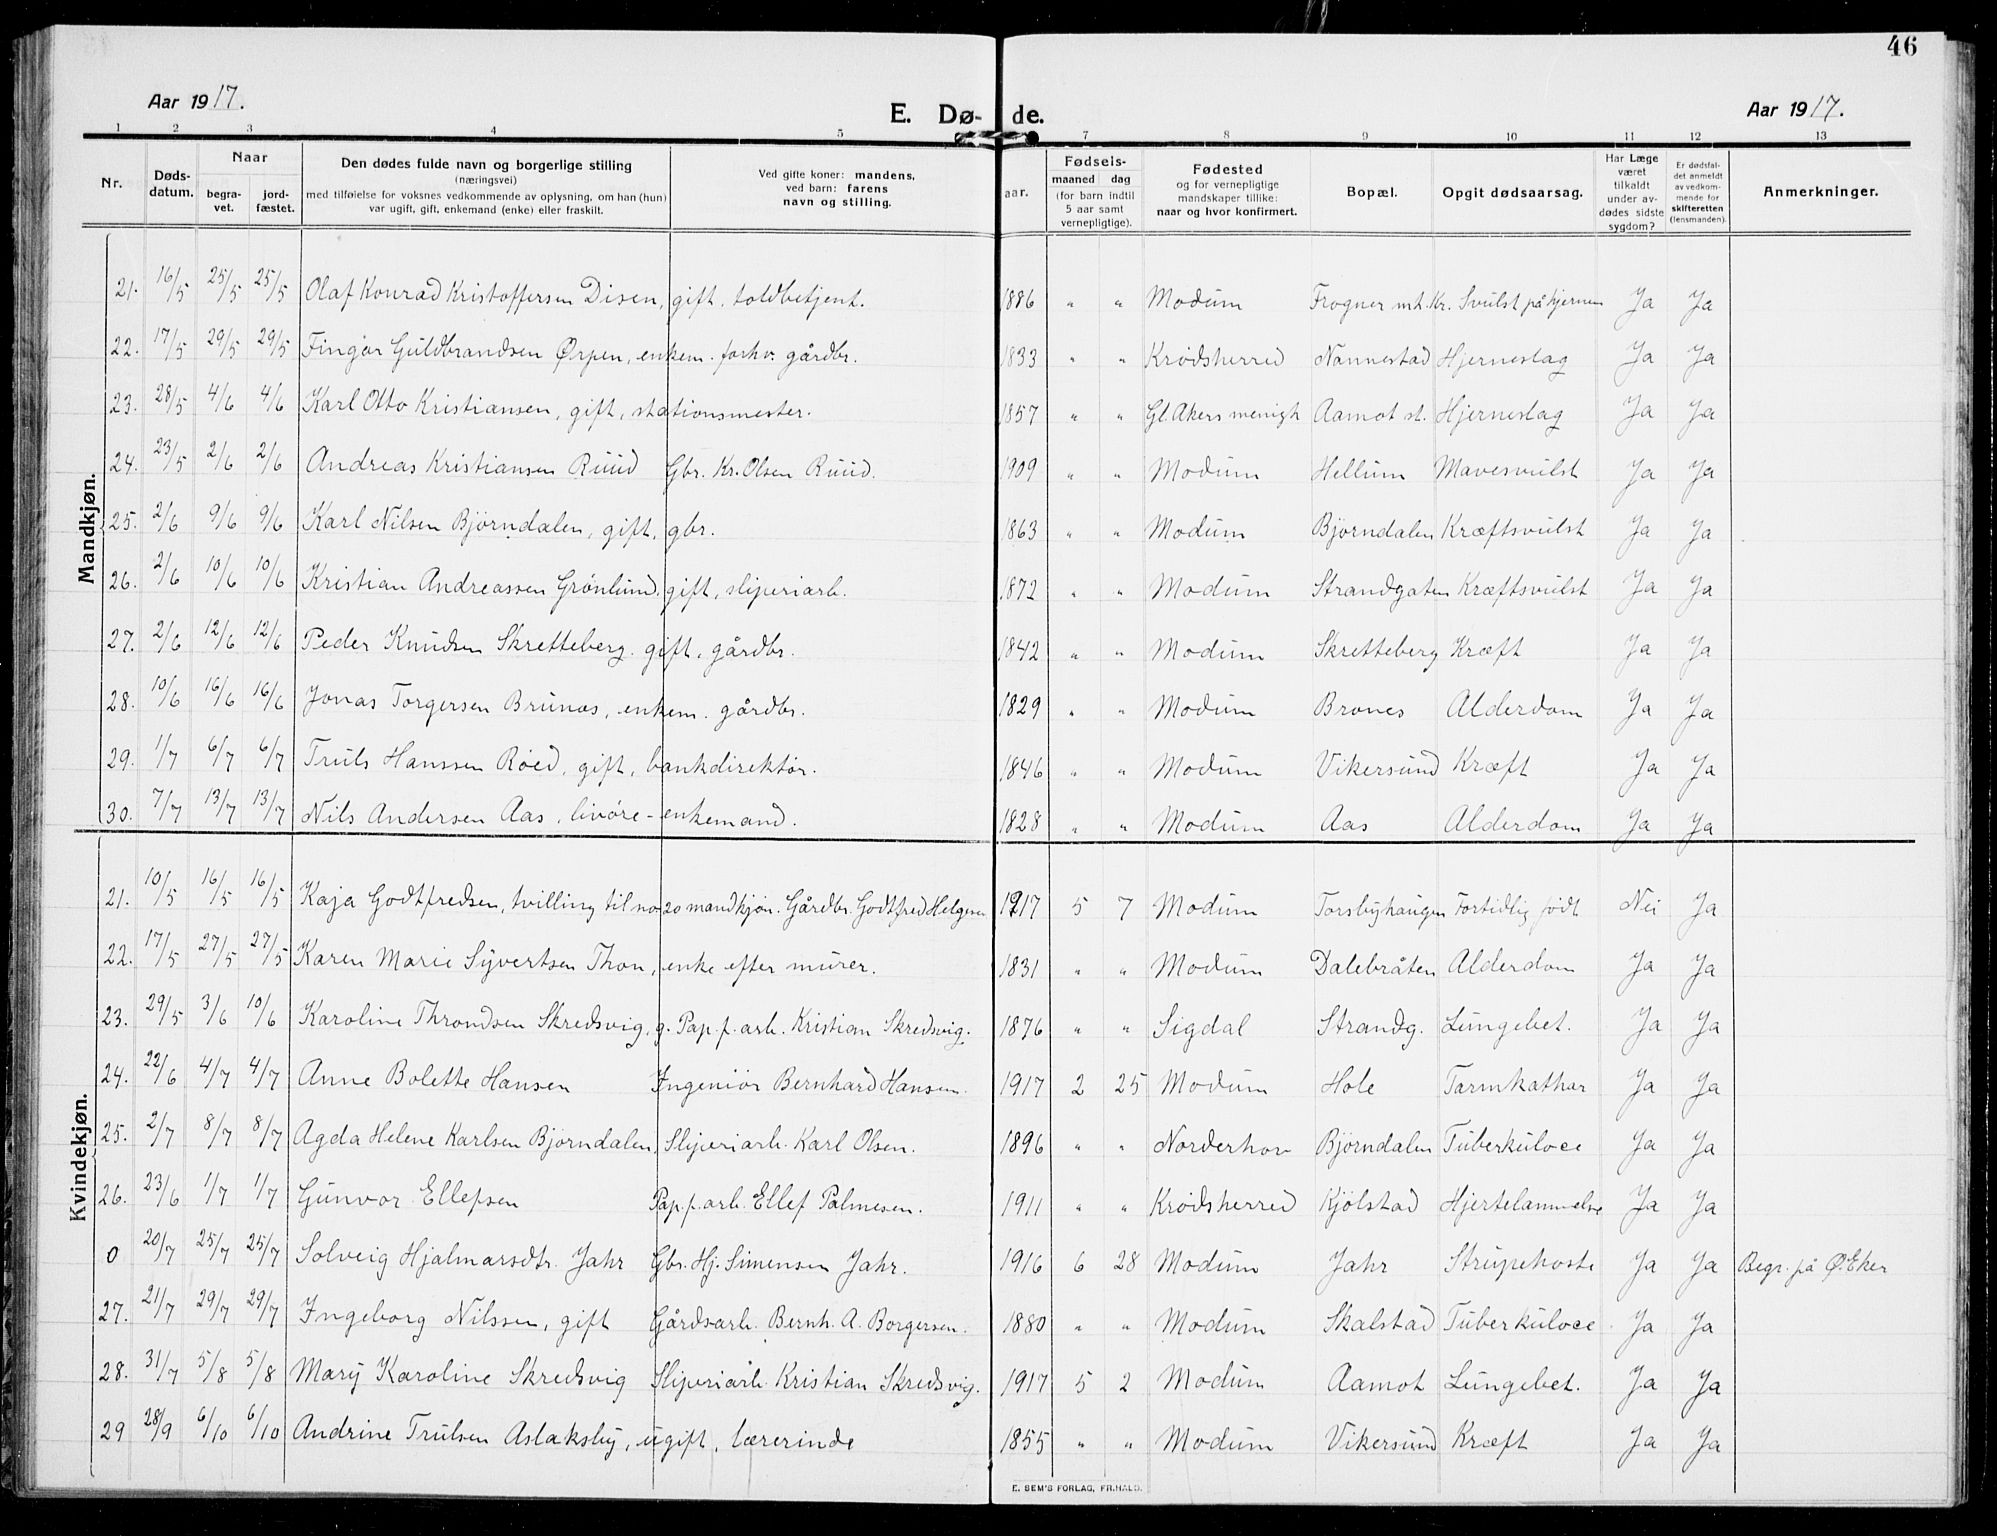 46
Aar 1917. E. Dø- de. Aar 1917.
1 2 3 4 5 7 8 9 10 11 12 13
Nr. Dødsdatum. Naar begravet. jordfæstet. Den dødes fulde navn og borgerlige stilling (næringsvei) med tilføielse for voksnes vedkommende av oplysning, om han (hun) var ugift, gift, enkemand (enke) eller fraskilt. Ved gifte koner: mandens, ved barn: farens navn og stilling. aar. Fødsels- maaned dag (for barn indtil 5 aar samt vernepligtige). Fødested og for vernepligtige mandskaper tillike: naar og hvor konfirmert. Bopæl. Opgit dødsaarsag. Har Læge været tilkaldt under avdødes sidste sygdom? Er dødsfaldet anmeldt av vedkommende for skifteretten (lensmanden). Anmerkninger.
Mandkjøn.
21. 16/5 25/5 25/5 Olaf Konrad Kristoffersen Disen, gift, toldbetjent. 1886 " " Modum Frogner mk. Kr. Svulst på hjernen Ja Ja
22. 17/5 29/5 29/5 Fingar Guldbrandsen Ørpen, enkem. forhv. gårdbr. 1833 " " Krødsherred Nannestad Hjerneslag Ja Ja
23. 28/5 4/6 4/6 Karl Otto Kristiansen, gift, stationsmester. 1857 " " Gl. Akers menigh Aamot st. Hjerneslag Ja Ja
24. 23/5 2/6 2/6 Andreas Kristiansen Ruud Gbr. Kr. Olsen Ruud. 1909 " " Modum Hellum Mavesvulst Ja Ja
25. 2/6 9/6 9/6 Karl Nilsen Bjørndalen, gift, gbr. 1863 " " Modum Bjørndalen Kræftsvulst Ja Ja
26. 2/6 10/6 10/6 Kristian Andreassen Grønlund, gift, sliperiarb. 1872 " " Modum Strandgaten Kræftsvulst Ja Ja
27. 2/6 12/6 12/6 Peder Knudsen Skretteberg. gift, gårdbr. 1842 " " Modum Skretteberg Kræft Ja Ja
28. 10/6 16/6 16/6 Jonas Torgersen Brunæs, enkem. gårdbr. 1829 " " Modum Brones Alderdom Ja Ja
29. 1/7 6/7 6/7 Truls Hanssen Røed, gift, bankdirektør. 1846 " " Modum Vikersund Kræft Ja Ja
30. 7/7 13/7 13/7 Nils Andersen Aas, livøre-enkemand. 1828 " " Modum Aas Alderdom Ja Ja
Kvindekjøn.
21. 10/5 16/5 16/5 Kaja Godtfredsen, tvilling til no 20 mandkjøn. Gårdbr. Godtfred Helgesen 1917 5 7 Modum Torsbyhaugen Fortidlig født Nei Ja
22. 17/5 27/5 27/5 Karen Marie Syvertsen Thon, enke efter murer. 1831 " " Modum Dalebråten Alderdom Ja Ja
23. 29/5 3/6 10/6 Karoline Throndsen Skredsvig, g. Pap.f. arb. Kristian Skredsvig. 1876 " " Sigdal Strandg. Lungebet. Ja Ja
24. 22/6 4/7 4/7 Anne Bolette Hansen Ingeniør Bernhard Hansen. 1917 2 25 Modum Hole Tarmkathar Ja Ja
25. 2/7 8/7 8/7 Agda Helene Karlsen Bjørndalen, Sliperiarb. Karl Olsen. 1896 " " Norderhov Bjørndalen Tuberkuloce Ja Ja
26. 23/6 1/7 1/7 Gunvor Ellefsen Pap.f. arb. Ellef Palmesen. 1911 " " Krødsherred Kjølstad Hjertelammelse Ja Ja
0 20/7 25/7 25/7 Solveig Hjalmarsdtr. Jahr Gbr. Hj. Simensen Jahr. 1916 6 28 Modum Jahr Strupehoste Ja Ja Begr. på Ø. Eker
27. 21/7 29/7 29/7 Ingeborg Nilssen, gift Gårdsarb. Bernh. A. Borgersen. 1880 " " Modum Skalstad Tuberkuloce Ja Ja
28. 31/7 5/8 5/8 Mary Karoline Skredsvig Sliperiarb. Kristian Skredsvig. 1917 5 2 Modum Aamot Lungebet. Ja Ja
29 28/9 6/10 6/10 Andrine Trulsen Aslaksby, ugift, lærerinde 1855 " " Modum Vikersund Kræft Ja Ja
E. SEM'S FORLAG, FR.HALD.